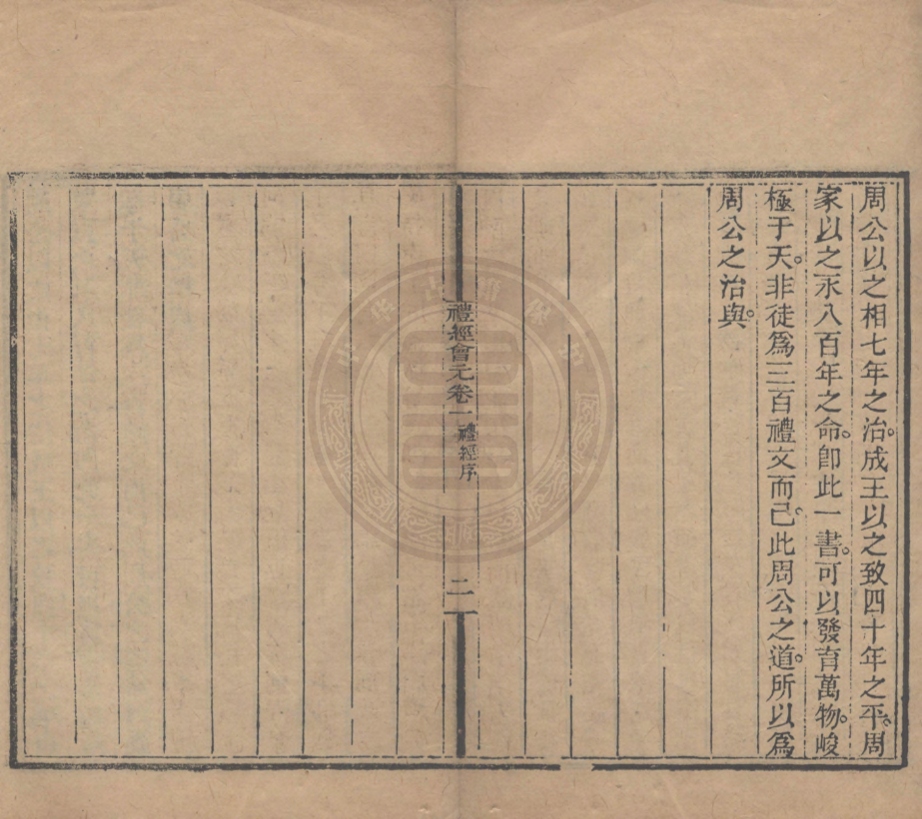 周公以之相七年之治。成王以之致四十年之平。周
家以之永八百年之命。卽此一書。可以發育萬物。峻
極于天。非徒爲三百禮文而已。此周公之道。所以爲
周公之治與。
禮經會元卷一 禮經序 二